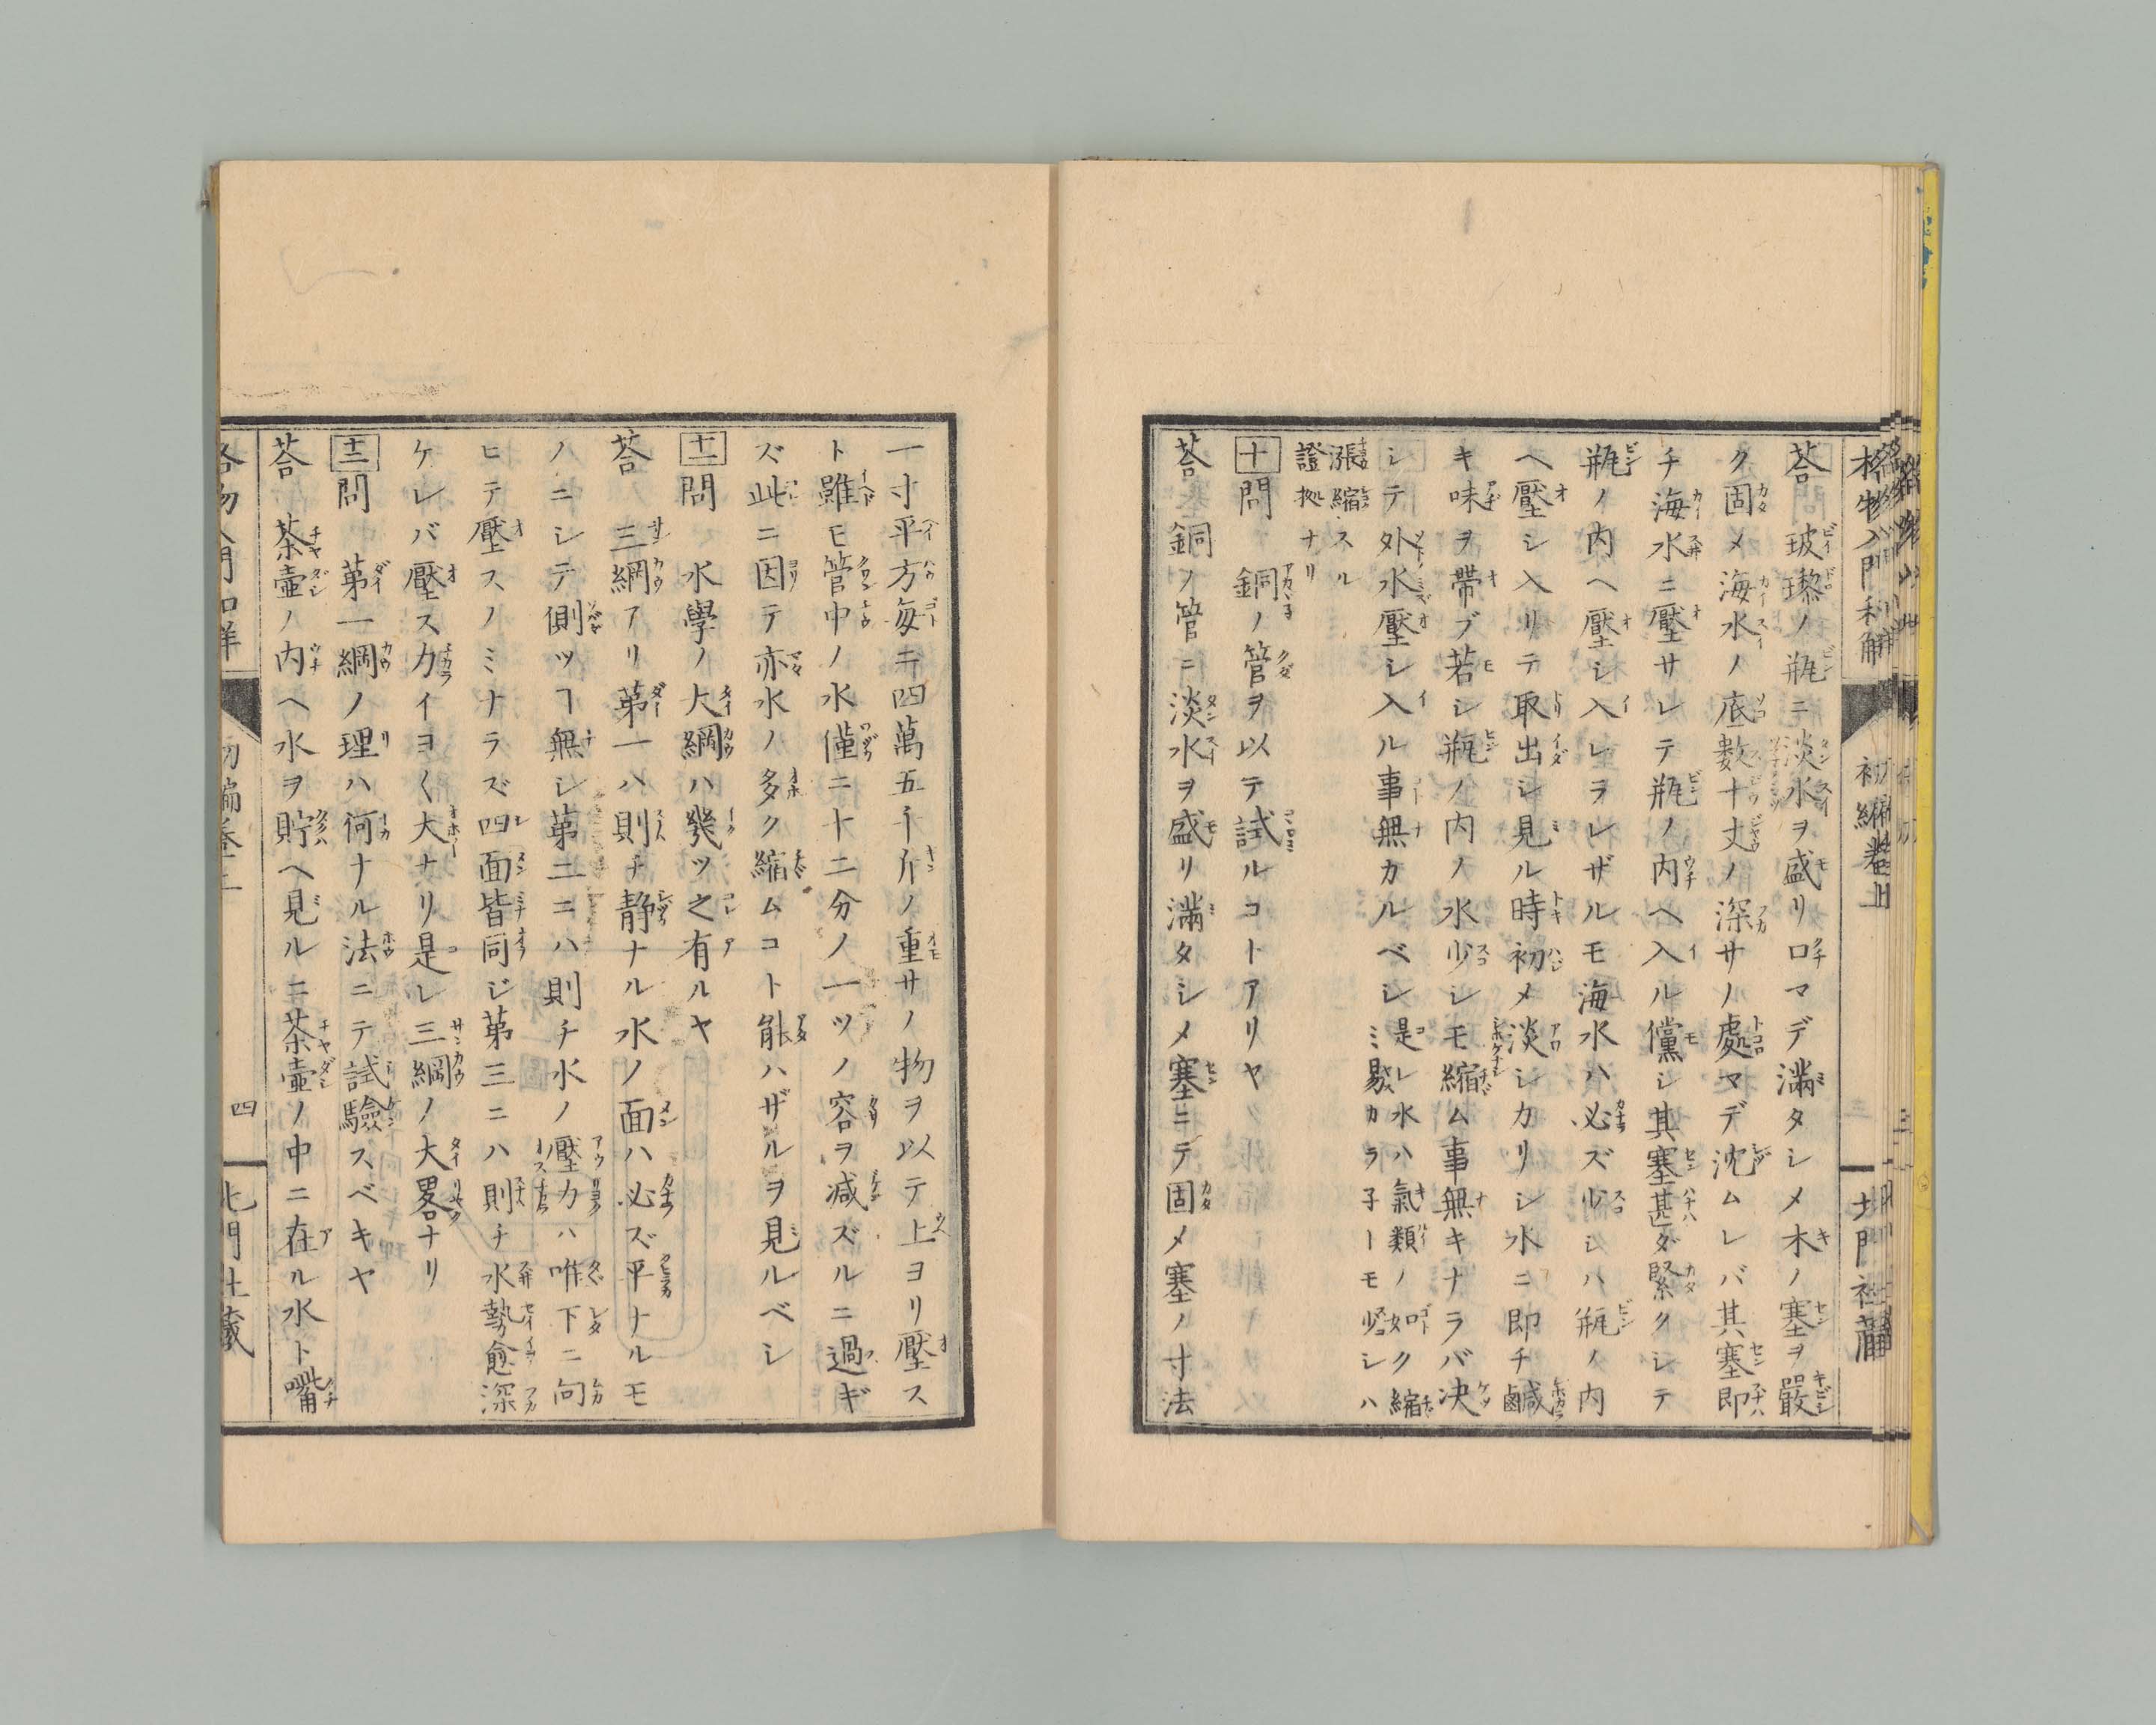 格物入門和解
初編卷上
三
北門社藏
荅 玻瓈ノ瓶ニ淡水ヲ盛リロマデ滿タシメ木ノ塞ヲ嚴
ク固メ海水ノ底數十丈ノ深サノ處マデ沈ムレバ其塞即
チ海水ニ壓サレテ瓶ノ内ヘ入ル儻シ其塞甚ダ緊クシテ
瓶ノ内ヘ壓シ入レヲレザルモ海水ハ必ズ少シハ瓶ノ内
ヘ壓シ入リテ取出シ見ル時初メ淡シカリシ水ニ即チ鹹
キ味ヲ帶ブ若シ瓶ノ内ノ水少シモ縮ム事無キナラバ决
シテ外水壓シ入ル事無カルベシ
是レ水ハ氣類ノ如ク縮
ミ易カラ子ーモ少シハ
漲縮スル
證拠ナリ
十問 銅ノ管ヲ以テ試ルコトアリヤ
荅 銅ノ管ニ淡水ヲ盛リ滿タシメ塞ニテ固メ塞ノ寸法
一寸平方每ニ四萬五千斤ノ重サノ物ヲ以テ上ヨリ壓ス
ト雖モ管中ノ水僅ニ十二分ノ一ツノ容ヲ减ズルニ過ギ
ズ此ニ因テ亦水ノ多ク縮ムコト能ハザルヲ見ルベシ
十一問 水學ノ大綱ハ幾ツ之有ルヤ
荅 三綱アリ第一ハ則チ静ナル水ノ面ハ必ズ平ナルモ
ノニシテ側ツヿ無シ第二ニハ則チ水ノ壓力ハ唯下ニ向
ヒテ壓スノミナラズ四面皆同じ第三ニハ則チ水勢愈深
ケレバ壓ス力イヨ〱大ナリ是レ三綱ノ大畧ナリ
十二問 第一綱ノ理ハ何ナル法ニテ試驗スベキヤ
荅 茶壷ノ内ヘ水ヲ貯ヘ見ルニ茶壷ノ中ニ在ル水ト嘴
四